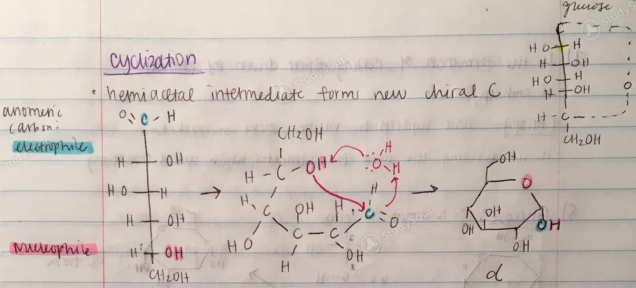 glucose
cyclization
• hemiacetal intermediate forms new chiral C
HO H
H OH
HO H
H OH
O
H C
CH2OH
anomeric
carbon:
electrophile
O C H
H OH
HO H
H OH
nucleophile
H OH
CH2OH
CH2OH
H C OH
O H
H
H C
HO
OH
C
H
H
C
OH
H
C O
OH
O
OH
OH
OH
OH
α